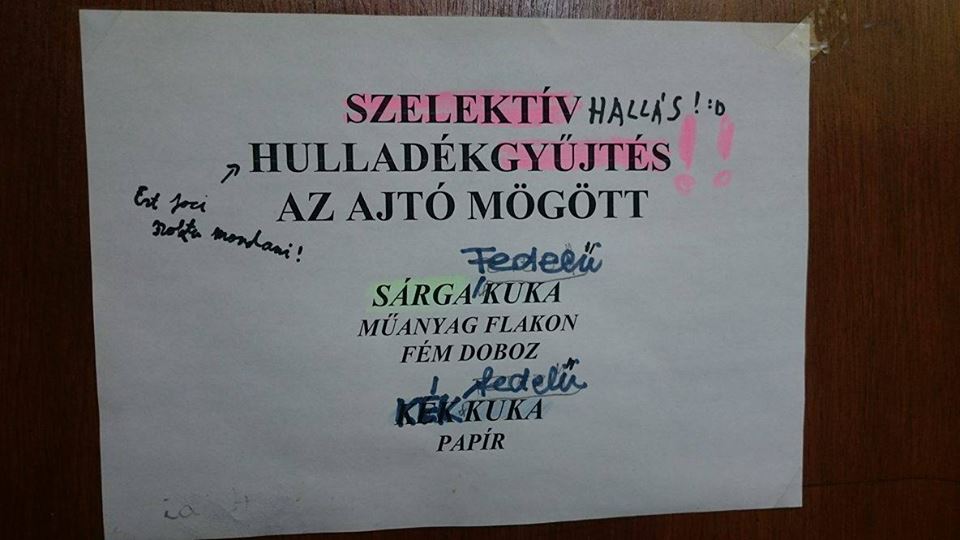 SZELEKTÍV HALLÁS! :D
HULLADÉKGYŰJTÉS !!
AZ AJTÓ MÖGÖTT
Ezt foci
mondani!
Fedelű
SÁRGA KUKA
MŰANYAG FLAKON
FÉM DOBOZ
fedelű
KÉK KUKA
PAPÍR